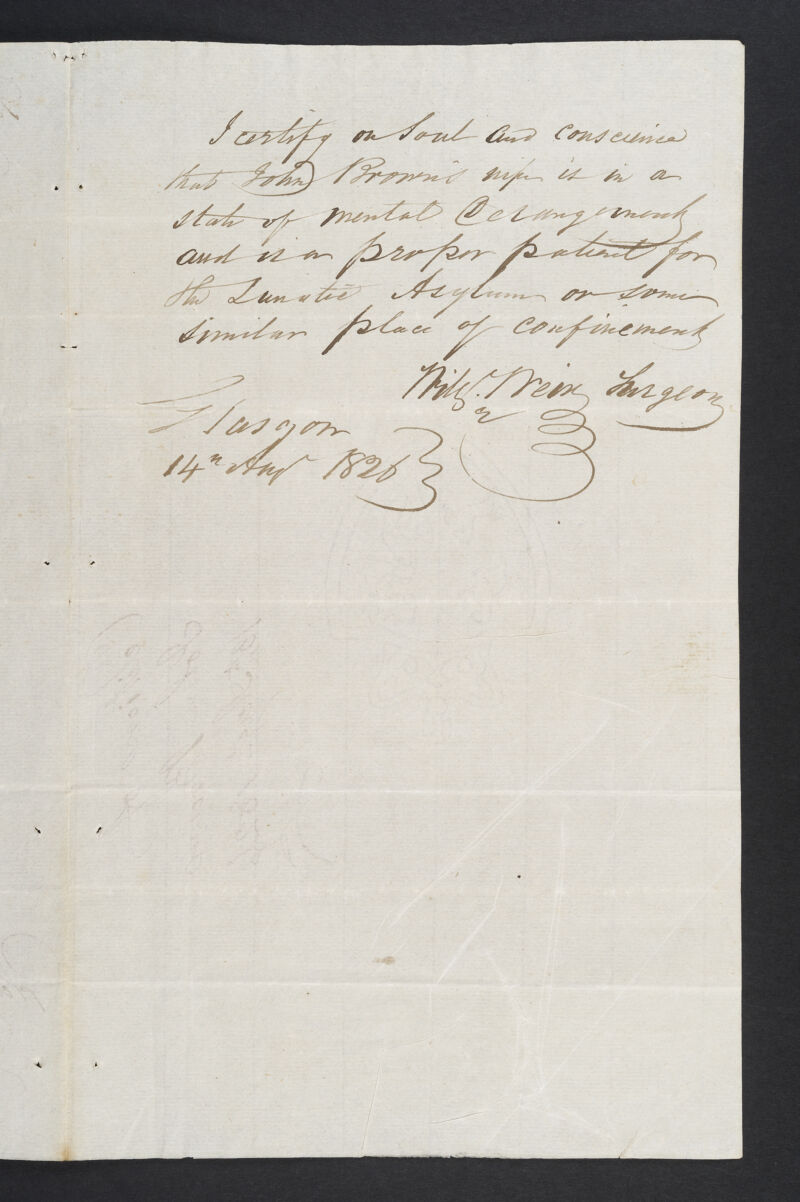 I certify on Soul and conscience
that John Brown's wife is in a
state of mental Derangement
and is a proper patient for
the Lunatic Asylum or some
similar place of confinement
Weir Surgeon
Glasgow
14th Augt 1826